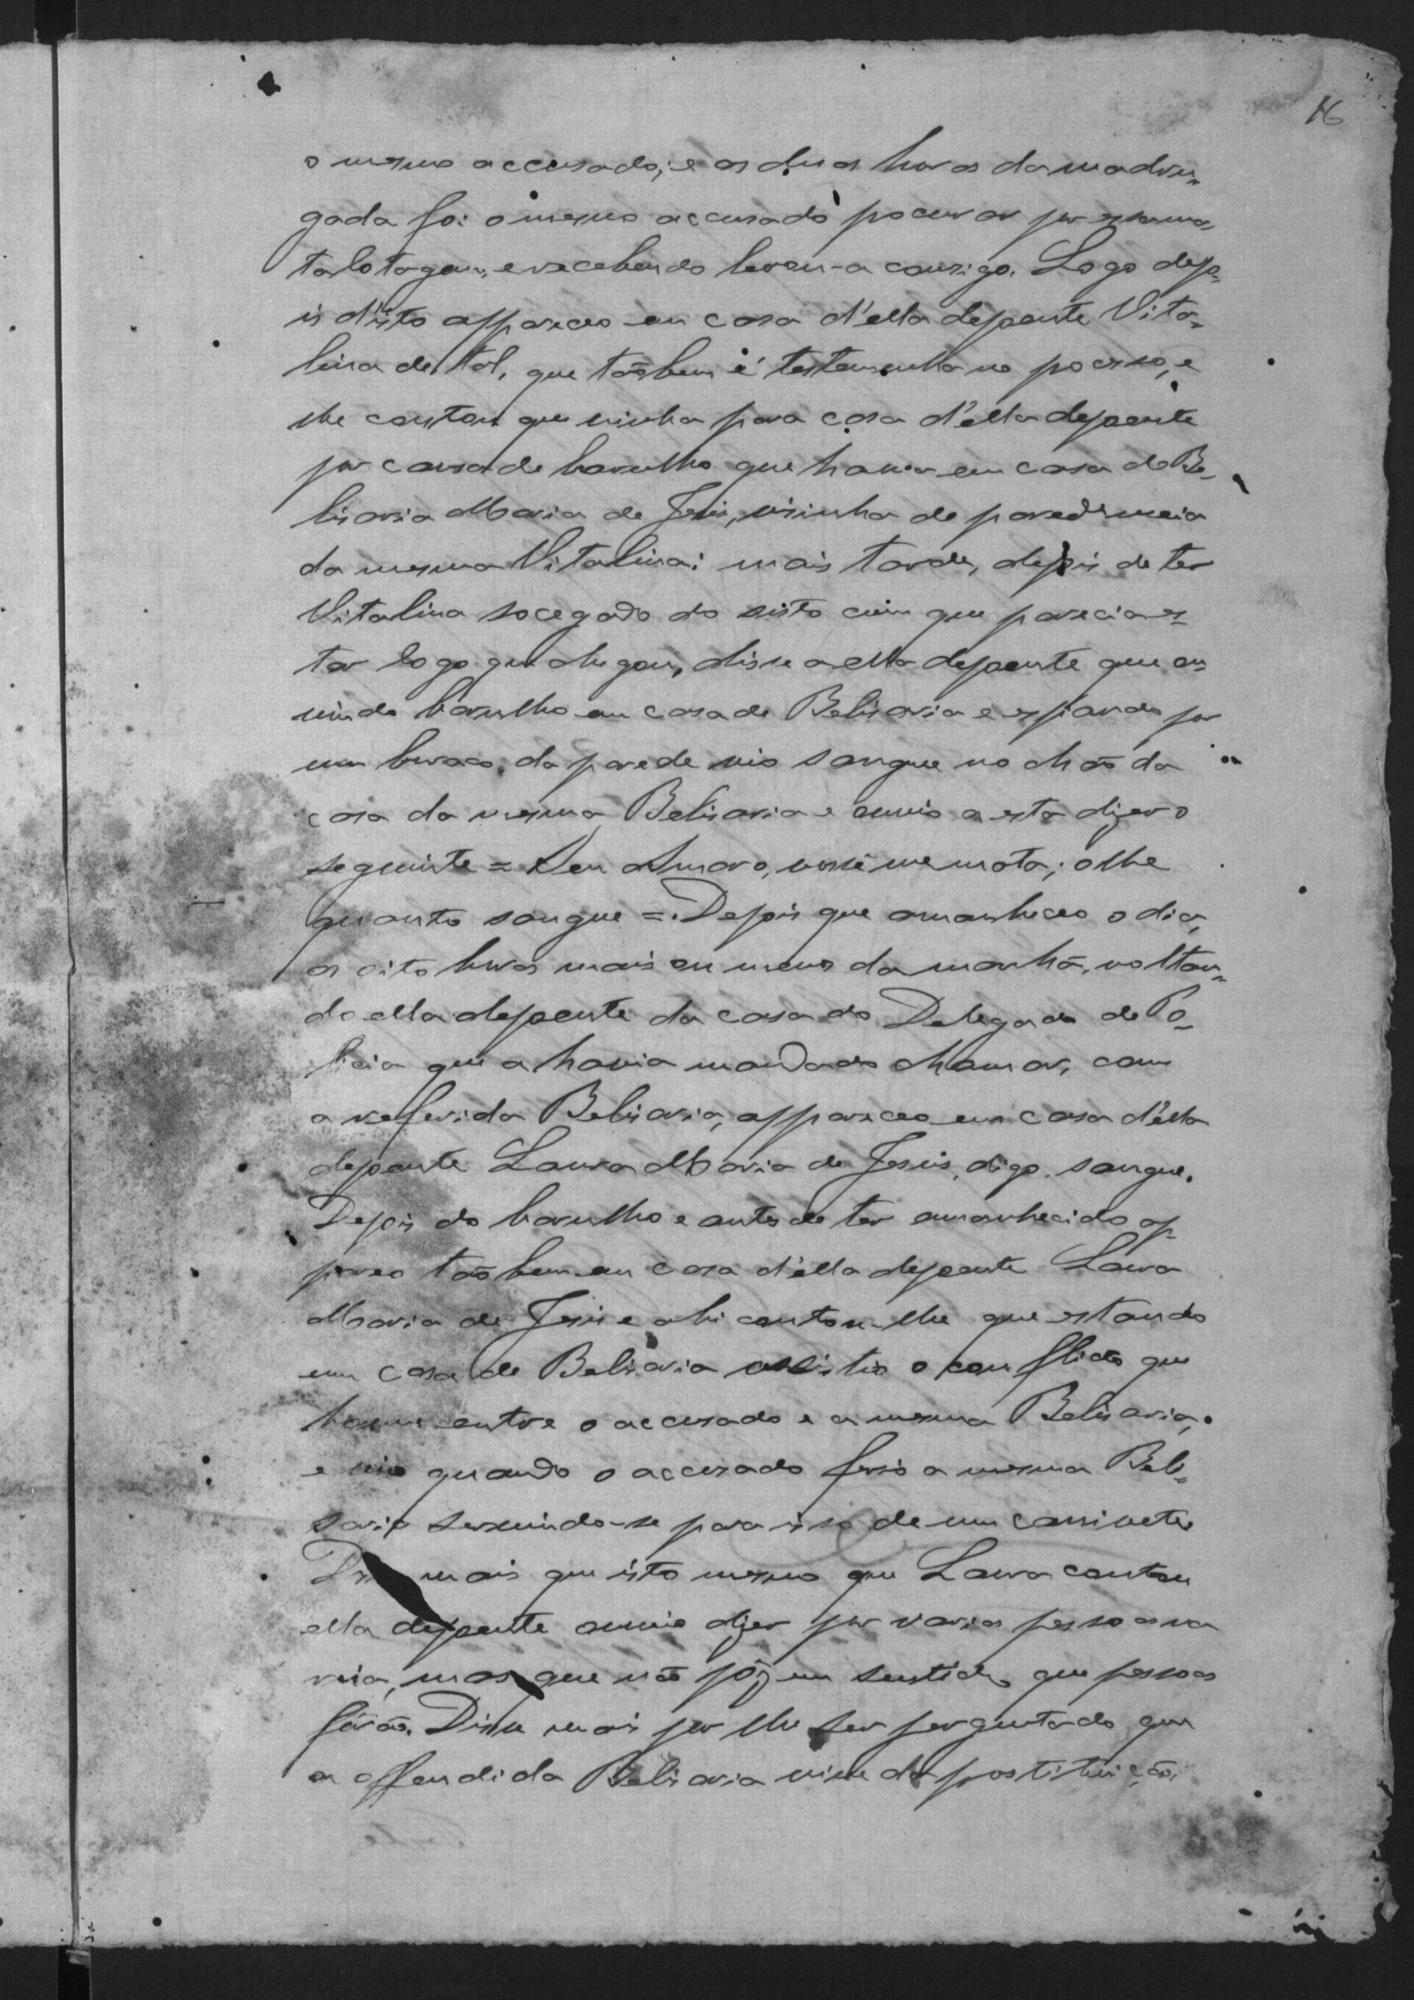 16
o mesmo accusado; e as duas horas da madru-
gada foi o mesmo accusado procurar por essa
e recebendo levou-a comsigo. Logo depo-
is d'isto appareceo em casa d'ella depoente Vita-
lina de tal, que tãobem é testemunha no processo, e
lhe contou que vinha para casa d'ella depoente
por causa de barulho que havia em casa de Be-
lisaria Maria de Jesus, visinha de parede meia
da mesma Vitalina; mais tarde, depois de ter
Vitalina socegado do susto com que parecia es-
tar logo que chegou, disse a ella depoente que ou-
vindo barulho em casa de Belisaria e espiando por
um buraco da parede vio sangue no chão da
casa da mesma Belisaria e ouvio a esta dizer o
seguinte = Seu Amaro, você me mata; olhe
quanto sangue =. Depois que amanheceo o dia,
as oito horas mais ou menos da manhã, voltan-
do ella depoente da casa do Delegado de Po-
licia que a havia mandado chamar, com
a referida Belisaria, appareceo em casa d'ella
depoente Laura Maria de Jesus, digo, sangue.
Depois do barulho e antes de ter amanhecido ap-
pareo tãobem em casa d'ella depoente Laura
Maria de Jesus e ahi contou-lhe que estando
em casa de Belisaria assistio o conflicto que
houve entre o accusado e a mesma Belisaria,
e vio quando o accusado ferio a mesma Beli-
saria servindo-se para isso de um canivete.
Disse mais que isto mesmo que Laura contou
ella depoente ouvio dizer por varias pessoas na
rua, mas que não pôz em sentido que pessoas
fôrão. Disse mais por lhe ser perguntado que
a offendida Belisaria vive da prostituição,